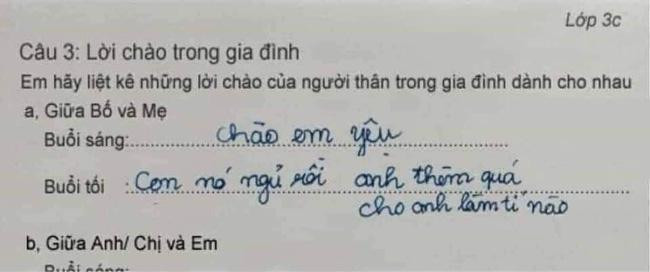 Lớp 3c
Câu 3: Lời chào trong gia đình
Em hãy liệt kê những lời chào của người thân trong gia đình dành cho nhau
a, Giữa Bố và Mẹ
Buổi sáng: chào em yêu
Buổi tối : Con nó ngủ rồi anh thèm quá
cho anh làm tí nào
b, Giữa Anh/ Chị và Em
Buổi sáng: